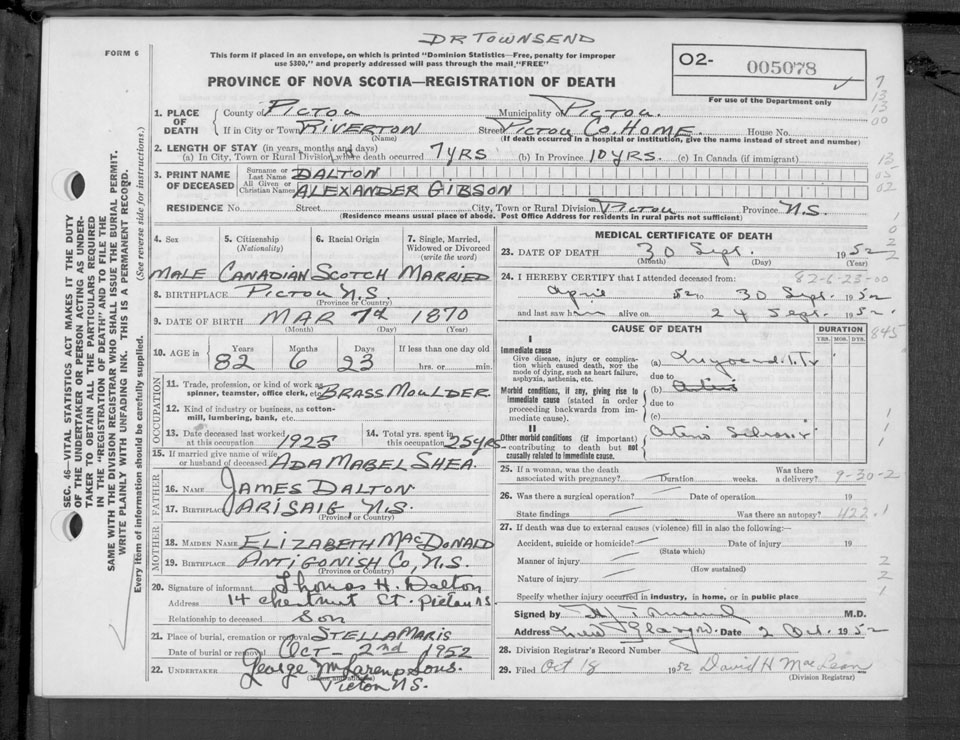 DR TOWNSEND
FORM 6
This form if placed in an envelope, on which is printed "Dominion Statistics—Free, penalty for improper
use $300," and properly addressed will pass through the mail, "FREE"
PROVINCE OF NOVA SCOTIA—REGISTRATION OF DEATH
O2- 005078
For use of the Department only
7
13
13
00
1. PLACE OF DEATH
County of PICTOU Municipality of PICTOU.
If in City or Town RIVERTON Street PICTOU CO. HOME. House No.
(Name) (If death occurred in a hospital or institution, give the name instead of street and number)
2. LENGTH OF STAY (in years, months and days)
(a) In City, Town or Rural Division where death occurred 7 YRS (b) In Province 10 YRS. (c) In Canada (if immigrant)
13
3. PRINT NAME OF DECEASED
Surname or Last Name DALTON
05
All Given or Christian Names ALEXANDER GIBSON
02
RESIDENCE No. Street City, Town or Rural Division PICTOU Province N.S.
(Residence means usual place of abode. Post Office Address for residents in rural parts not sufficient)
4. Sex 5. Citizenship (Nationality) 6. Racial Origin 7. Single, Married, Widowed or Divorced (write the word)
MALE CANADIAN SCOTCH MARRIED
8. BIRTHPLACE PICTOU N.S
(Province or Country)
9. DATE OF BIRTH MAR 7th 1870
(Month) (Day) (Year)
10. AGE in Years Months Days If less than one day old
82 6 23 hrs. or min.
OCCUPATION
11. Trade, profession, or kind of work as spinner, teamster, office clerk, etc. BRASS MOULDER
12. Kind of industry or business, as cotton-mill, lumbering, bank, etc.
13. Date deceased last worked at this occupation 1925 14. Total yrs. spent in this occupation 25 YRS.
15. If married give name of wife or husband of deceased ADA MABEL SHEA.
FATHER
16. NAME JAMES DALTON
17. BIRTHPLACE ARISAIG, N.S.
(Province or Country)
MOTHER
18. MAIDEN NAME ELIZABETH MACDONALD
19. BIRTHPLACE ANTIGONISH CO, N.S.
(Province or Country)
20. Signature of informant Thomas H. Dalton
Address 14 Chestnut St. Pictou NS
Relationship to deceased Son
21. Place of burial, cremation or removal STELLA MARIS
Date of burial or removal OCT - 2nd 1952
22. UNDERTAKER George McLaren & Sons.
(Name and address)
Pictou N.S.
MEDICAL CERTIFICATE OF DEATH
23. DATE OF DEATH 30 Sept. 1952
(Month) (Day) (Year)
24. I HEREBY CERTIFY that I attended deceased from: 82-6-23-00
April 52 to 30 Sept. 1952
and last saw him alive on 24 Sept. 1952.
CAUSE OF DEATH DURATION 845
YRS. MOS. DYS.
I
Immediate cause
Give disease, injury or complication which caused death, NOT the mode of dying, such as heart failure, asphyxia, asthenia, etc.
(a) Myocarditis
due to
Morbid conditions, if any, giving rise to immediate cause (stated in order proceeding backwards from immediate cause).
(b)
due to
(c)
II
Other morbid conditions (if important) contributing to death but not causally related to immediate cause.
Arterio Sclerosis
25. If a woman, was the death associated with pregnancy? Duration weeks. Was there a delivery? 9-30-2
26. Was there a surgical operation? Date of operation 19
State findings Was there an autopsy? 422.1
27. If death was due to external causes (violence) fill in also the following:—
Accident, suicide or homicide? Date of injury 19
(State which)
Manner of injury
(How sustained)
Nature of injury
Specify whether injury occurred in industry, in home, or in public place
Signed by M.D.
Address New Glasgow. Date 2 Oct. 1952
28. Division Registrar's Record Number
29. Filed Oct 18 1952 David H MacLean
(Division Registrar)
SEC. 46—VITAL STATISTICS ACT MAKES IT THE DUTY
OF THE UNDERTAKER OR PERSON ACTING AS UNDER-
TAKER TO OBTAIN ALL THE PARTICULARS REQUIRED
IN THE "REGISTRATION OF DEATH" AND TO FILE THE
SAME WITH THE DIVISION REGISTRAR WHO SHALL ISSUE THE BURIAL PERMIT.
WRITE PLAINLY WITH UNFADING INK. THIS IS A PERMANENT RECORD.
Every item of information should be carefully supplied. (See reverse side for instructions.)